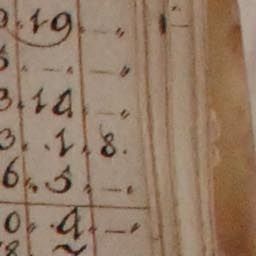 9.19.—."
3.—.—"
3.14.—"
3..1.8.
6..5.—.
0..4.—.